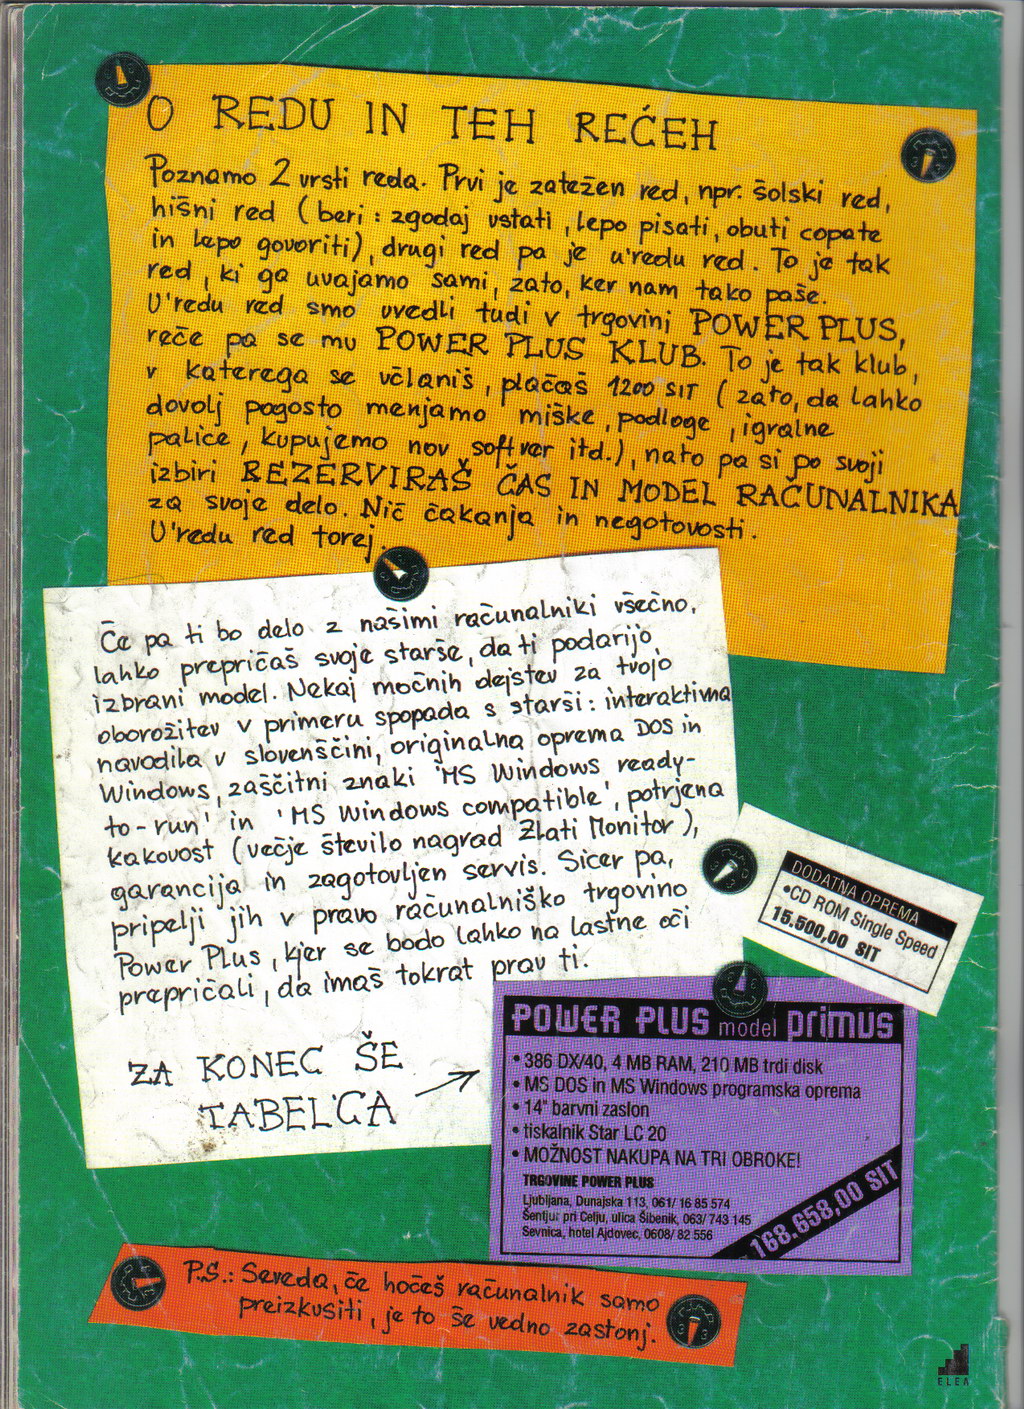 O REDU IN TEH REČEH
Poznamo 2 vrsti reda. Prvi je zatežen red, npr. šolski red,
hišni red (beri: zgodaj vstati, lepo pisati, obuti copate
in lepo govoriti), drugi red pa je u'redu red. To je tak
red, ki ga uvajamo sami, zato, ker nam tako paše.
U'redu red smo uvedli tudi v trgovini POWER PLUS,
reče pa se mu POWER PLUS KLUB. To je tak klub,
v katerega se včlaniš, plačaš 1200 SIT (zato, da lahko
dovolj pogosto menjamo miške, podloge, igralne
palice, kupujemo nov softver itd.), nato pa si po svoji
izbiri REZERVIRAŠ ČAS IN MODEL RAČUNALNIKA
za svoje delo. Nič čakanja in negotovosti.
U'redu red torej.
Če pa ti bo delo z našimi računalniki všečno,
lahko prepričaš svoje starše, da ti podarijo
izbrani model. Nekaj močnih dejstev za tvojo
oborožitev v primeru spopada s starši: interaktivna
navodila v slovenščini, originalna oprema DOS in
Windows, zaščitni znaki 'MS Windows ready-
to-run' in 'MS Windows compatible', potrjena
kakovost (večje število nagrad Zlati Monitor),
garancija in zagotovljen servis. Sicer pa,
pripelji jih v pravo računalniško trgovino
Power Plus, kjer se bodo lahko na lastne oči
prepričali, da imaš tokrat prav ti.
ZA KONEC ŠE
TABELCA
DODATNA OPREMA
•CD ROM Single Speed
15.500,00 SIT
POWER PLUS model primus
• 386 DX/40, 4 MB RAM, 210 MB trdi disk
• MS DOS in MS Windows programska oprema
• 14" barvni zaslon
• tiskalnik Star LC 20
• MOŽNOST NAKUPA NA TRI OBROKE!
TRGOVINE POWER PLUS
Ljubljana, Dunajska 113, 061/ 16 85 574
Šentjur pri Celju, ulica Šibenik, 063/ 743 145
Sevnica, hotel Ajdovec, 0608/ 82 556
168.658,00 SIT
P.S.: Seveda, če hočeš računalnik samo
preizkusiti, je to še vedno zastonj.
ELEA